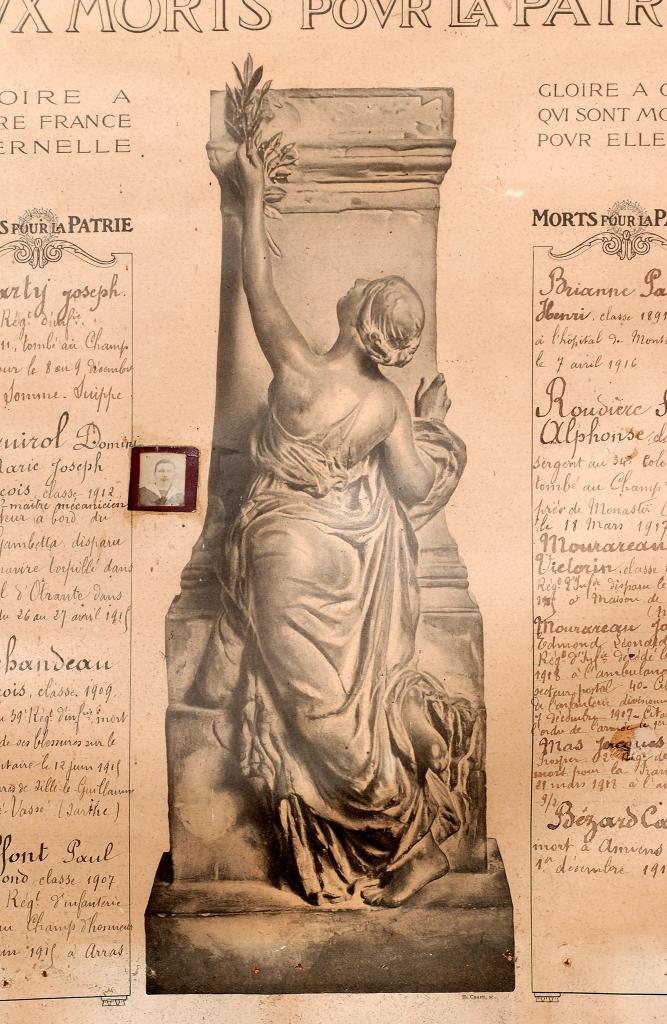 VX MORTS POVR LA PATR
OIRE A
RE FRANCE
ERNELLE
S POUR LA PATRIE
arty Joseph.
Régt d'infie
11, tombé au Champ
ur le 8 au 9 décembre
Somme-Suippe
uirol Domini
Marie Joseph
cois, classe 1912,
maître mécanicien
teur a bord du
Gambetta, disparu
navire torpillé dans
l d'Otrante dans
du 26 au 27 avril 1915
chandeau
cois, classe 1909,
u 39e Régt d'infie mort
de ses blessures sur le
ntaire le 12 juin 1915
de Sillé-le-Guillaum
Vassé (Sarthe)
ffont Paul
ond, classe 1907
Régt d'infanterie
u Champ d'honneur
1915 à Arras
GLOIRE A
QVI SONT MO
POVR ELLE
MORTS POUR LA PA
Brianne Pa
Henri, classe 1891
à l'hôpital de Mont
le 7 avril 1916
Roudière
Alphonse, de
sergent au 34e Colo
tombé au Champ
près de Monastir
le 18 Mars 1917
Mourareau
Victorin, classe
Régt d'Infie disparu le
à Maison de
Mourareau Jo
Edmond Léonard
Régt d'Infie décédé le
1918 à l'ambulance
secteur postal 40-
à l'infanterie divisionn
7 décembre 1917-
ordre de l'armée le 1er
Mas Jacques
Prosper, 2e Régt de
mort pour la Fra
21 mars 1918 à l'
Bézard Ca
mort à Amiens
1er décembre 191